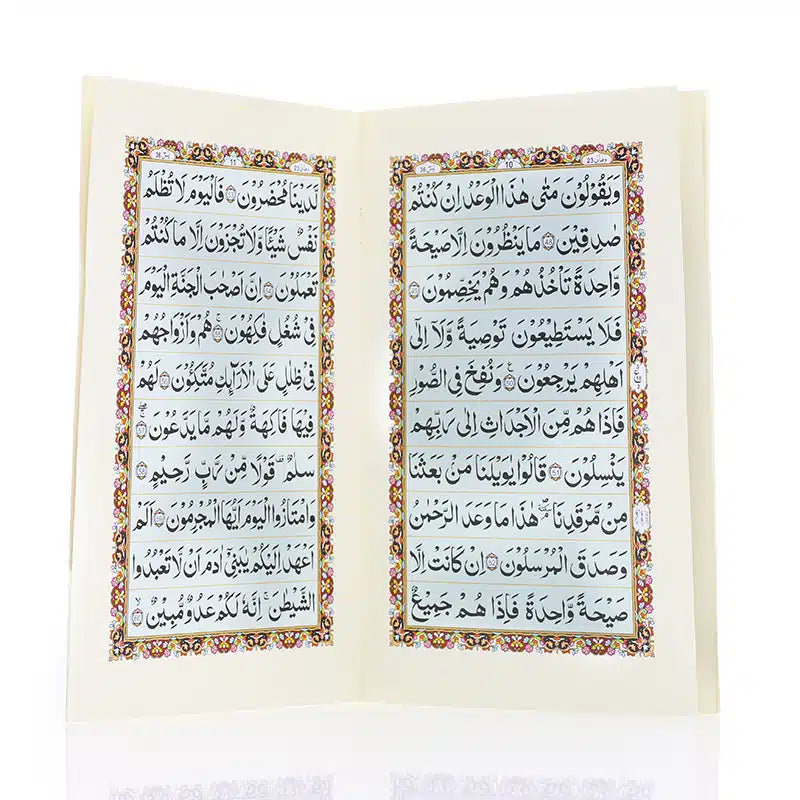 يٰسٓ 36
10
وما لى 23
وَيَقُوْلُوْنَ مَتٰى هٰذَا الْوَعْدُ اِنْ كُنْتُمْ
صٰدِقِيْنَ ﴿48﴾ مَا يَنْظُرُوْنَ اِلَّا صَيْحَةً
وَّاحِدَةً تَاْخُذُهُمْ وَهُمْ يَخِصِّمُوْنَ ﴿49﴾
فَلَا يَسْتَطِيْعُوْنَ تَوْصِيَةً وَّلَاۤ اِلٰٓى
اَهْلِهِمْ يَرْجِعُوْنَ ﴿50﴾ وَنُفِخَ فِى الصُّوْرِ
فَاِذَا هُمْ مِّنَ الْاَجْدَاثِ اِلٰى رَبِّهِمْ
يَنْسِلُوْنَ ﴿51﴾ قَالُوْا يٰوَيْلَنَا مَنْۢ بَعَثَنَا
مِنْ مَّرْقَدِنَا هٰذَا مَا وَعَدَ الرَّحْمٰنُ
وَصَدَقَ الْمُرْسَلُوْنَ ﴿52﴾ اِنْ كَانَتْ اِلَّا
صَيْحَةً وَّاحِدَةً فَاِذَا هُمْ جَمِيْعٌ
يٰسٓ 36
11
وما لى 23
لَّدَيْنَا مُحْضَرُوْنَ ﴿53﴾ فَالْيَوْمَ لَا تُظْلَمُ
نَفْسٌ شَيْـًٔا وَّلَا تُجْزَوْنَ اِلَّا مَا كُنْتُمْ
تَعْمَلُوْنَ ﴿54﴾ اِنَّ اَصْحٰبَ الْجَنَّةِ الْيَوْمَ
فِىْ شُغُلٍ فٰكِهُوْنَ ﴿55﴾ هُمْ وَاَزْوَاجُهُمْ
فِىْ ظِلٰلٍ عَلَى الْاَرَآئِكِ مُتَّكِـُٔوْنَ ﴿56﴾ لَهُمْ
فِيْهَا فَاكِهَةٌ وَّلَهُمْ مَّا يَدَّعُوْنَ ﴿57﴾
سَلٰمٌ قَوْلًا مِّنْ رَّبٍّ رَّحِيْمٍ ﴿58﴾
وَامْتَازُوا الْيَوْمَ اَيُّهَا الْمُجْرِمُوْنَ ﴿59﴾ اَلَمْ
اَعْهَدْ اِلَيْكُمْ يٰبَنِىْۤ اٰدَمَ اَنْ لَّا تَعْبُدُوا
الشَّيْطٰنَ اِنَّهٗ لَكُمْ عَدُوٌّ مُّبِيْنٌ ﴿60﴾